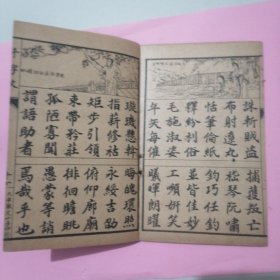 誅斬賊盜 捕獲叛亡
布射遼丸 嵇琴阮嘯
恬筆倫紙 鈞巧任釣
釋紛利俗 並皆佳妙
毛施淑姿 工顰妍笑
年矢每催 曦暉朗曜
璇璣懸斡 晦魄環照
指薪修祜 永綏吉劭
矩步引領 俯仰廊廟
束帶矜莊 徘徊瞻眺
孤陋寡聞 愚蒙等誚
謂語助者 焉哉乎也
千字文